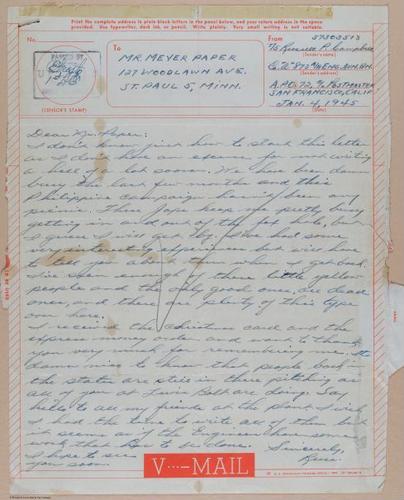 Print the complete address in plain block letters in the panel below, and your return address in the space
provided. Use typewriter, dark ink, or pencil. Write plainly. Very small writing is not suitable.
No.
(CENSOR'S STAMP)
To
MR. MEYER PAPER
127 WOODLAWN AVE.
ST. PAUL 5, MINN.
From
37303513
T/5 Russell P. Campbell
(Sender's name)
Co. "C"
(Sender's address)
A.P.O. 72, % POSTMASTER
SAN FRANCISCO, CALIF.
JAN. 4, 1945
(Date)
Dear Mr. Paper:
I don't know just how to start this letter
as I don't have an excuse for not writing
a hell of a lot sooner. We have been damn
busy the last few months and this
Philippine campaign hasn't been any
picnic. These Japs keep me pretty busy
getting in and out of the fox hole, but
I guess I will get by. I've had some
very interesting experiences but will have
to tell you about them when I get back.
I've seen enough of these little yellow
people and the only good ones, are dead
ones, and there are plenty of this type
over here.
I received the Christmas card and the
express money order and want to thank
you very much for remembering me. It's
damn nice to know that people back in
the states are still in there pitching as
all of you at Lewis Bolt are doing. Say
hello to all my friends at the plant. I wish
I had the time to write all of them but
it seems as if the Engineers have some
work that has to be done.
I hope to see
you soon.
Sincerely,
Russ.
V···–MAIL